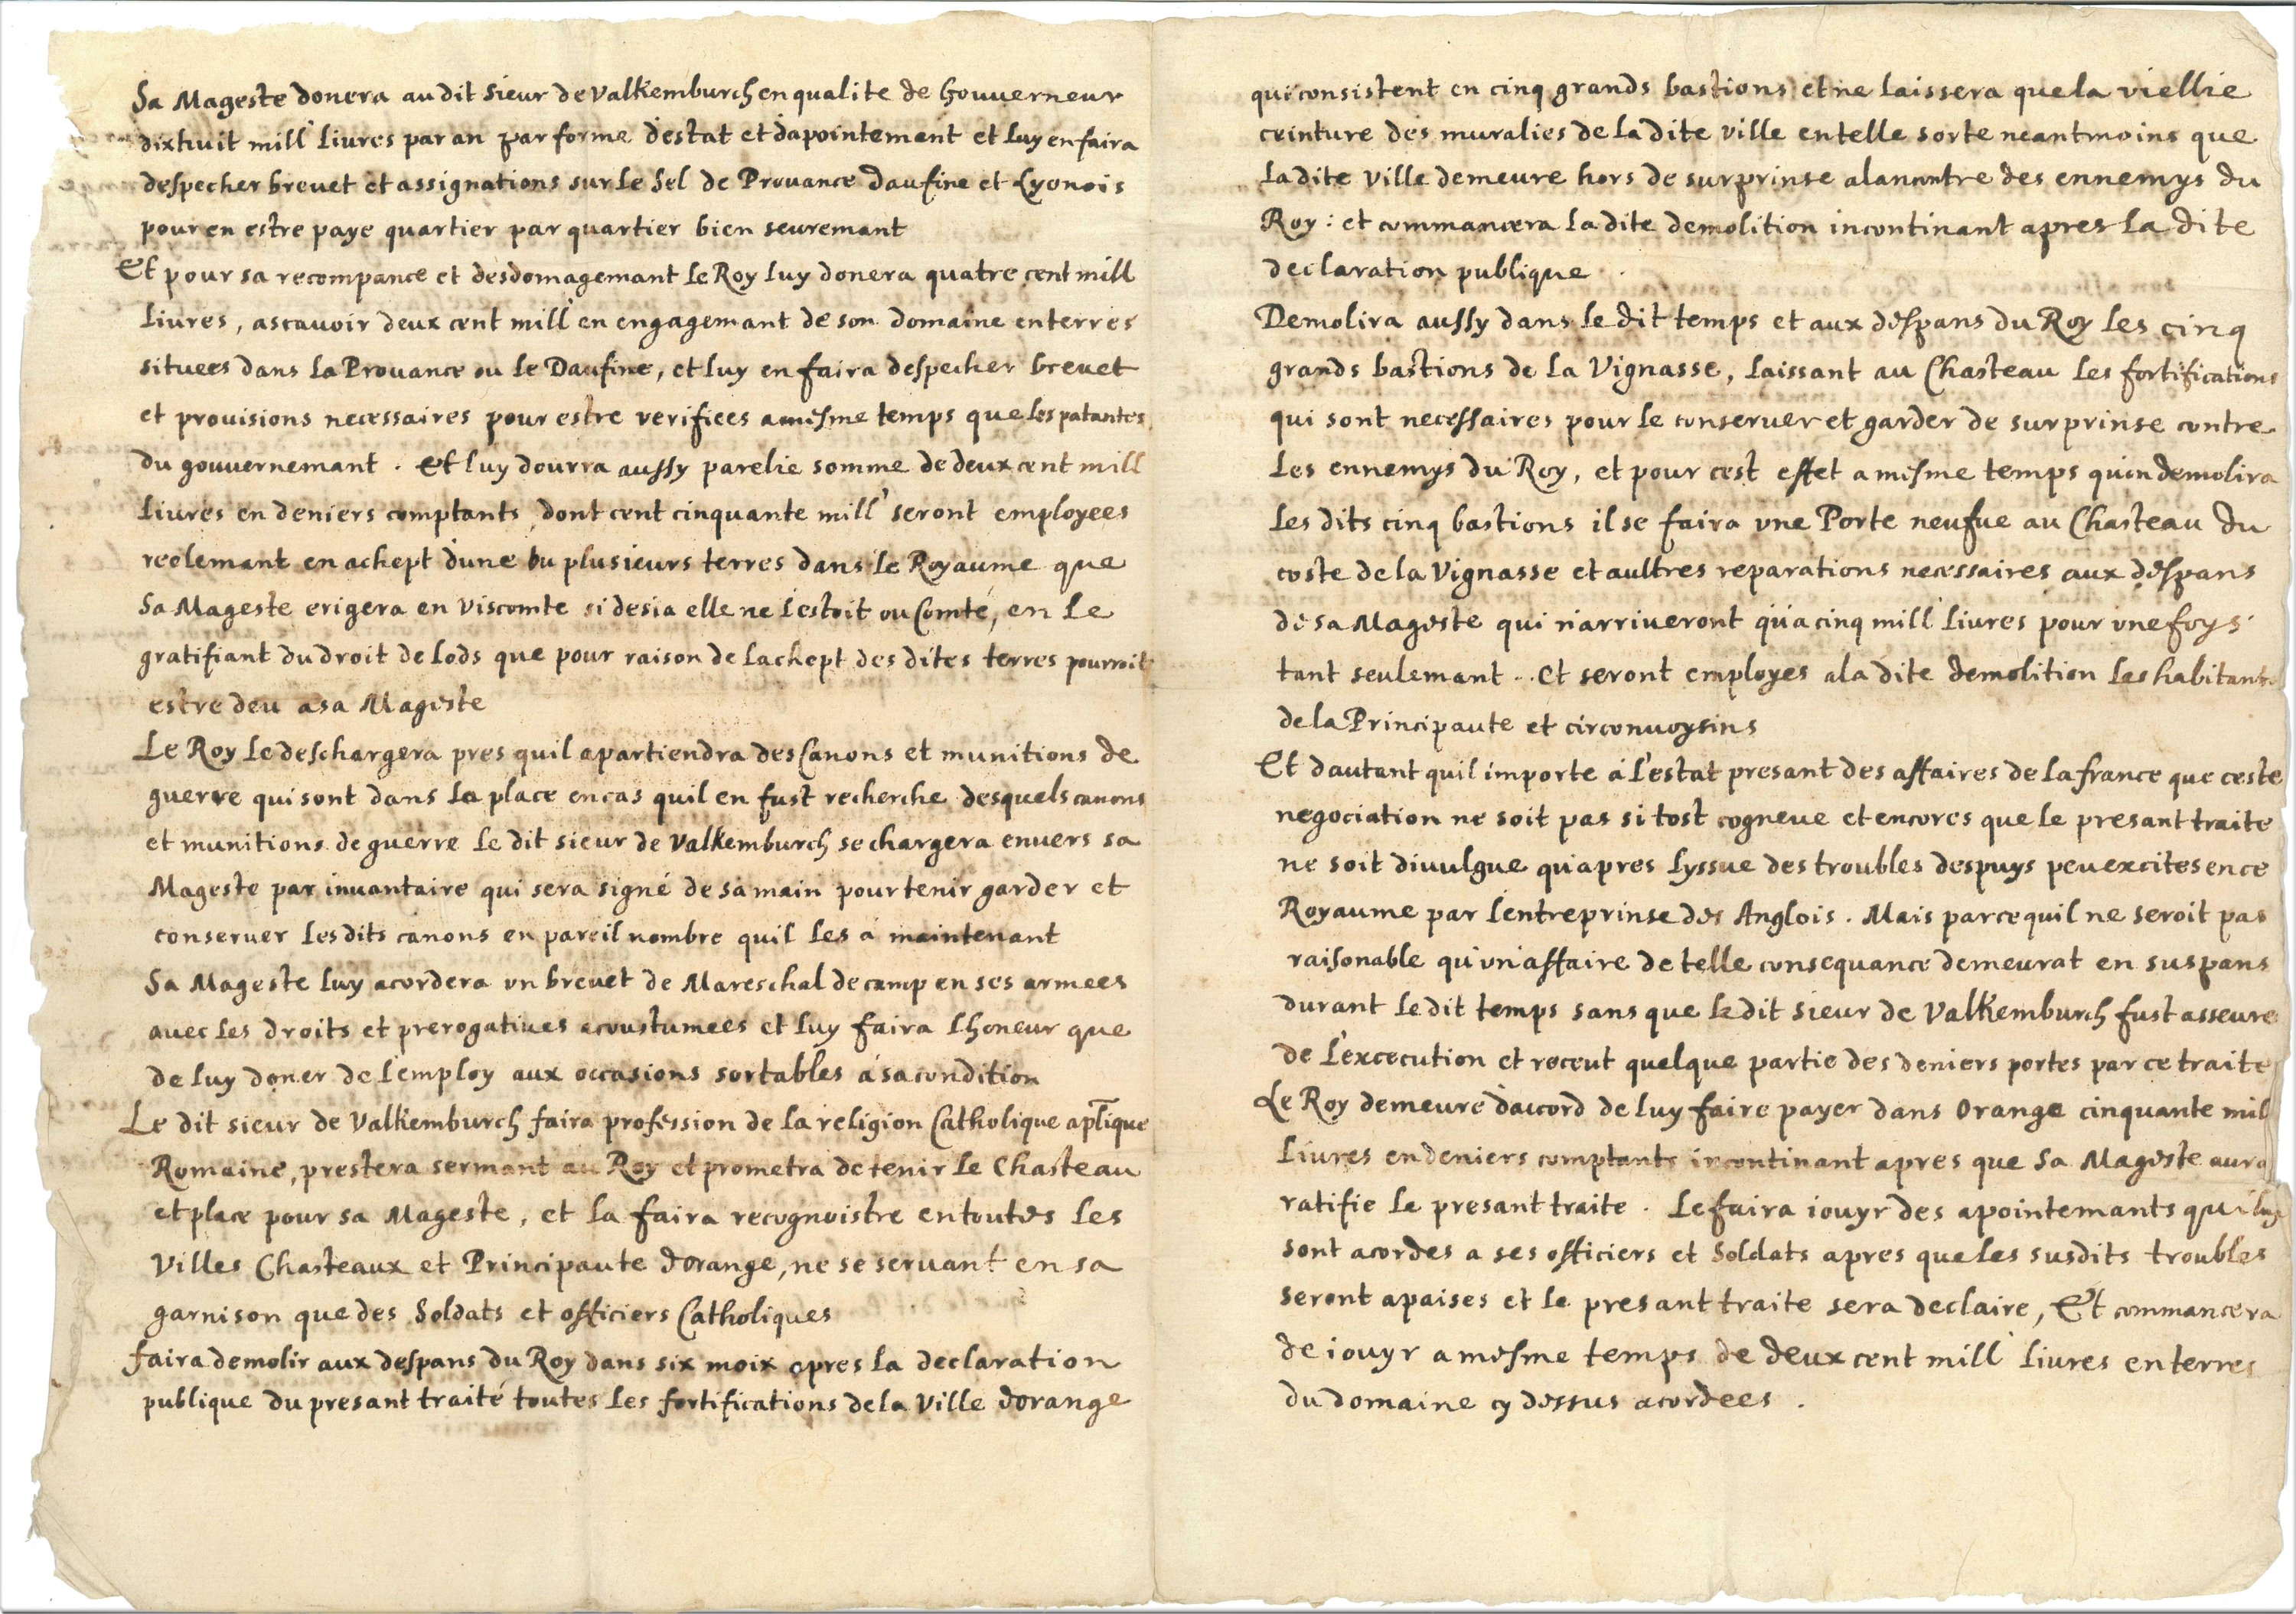 Sa Mageste donera au dit sieur de Valkemburch en qualite de Gouuerneur
dixhuit mill liures par an par forme d'estat et d'apointement et luy en faira
despecher breuet et assignations sur le sel de Prouance Daufine et Lyonois
pour en estre paye quartier par quartier bien seuremant
Et pour sa recompance et desdomagemant le Roy luy donera quatre cent mill
liures, ascauoir deux cent mill en engagemant de son domaine en terres
situees dans la Prouance ou le Daufine, et luy en faira despecher breuet
et prouisions necessaires pour estre verifiees a mesme temps que les patantes
du gouuernemant. Et luy dourra aussy parelie somme de deux cent mill
liures en deniers comptants, dont cent cinquante mill' seront employees
reelemant en achept d'une ou plusieurs terres dans le Royaume que
Sa Mageste erigera en Viscomte si desia elle ne l'estoit ou Comté, en le
gratifiant du droit de lods que pour raison de lachept des dites terres pourroit
estre deu a sa Mageste
Le Roy le deschargera pres quil apartiendra des Canons et munitions de
guerre qui sont dans la place en cas quil en fust recherche desquels canons
et munitions de guerre le dit sieur de Valkemburch se chargera enuers sa
Mageste par inuantaire qui sera signé de sa main pour tenir garder et
conseruer les dits canons en pareil nombre quil les a maintenant
Sa Mageste luy acordera vn breuet de Mareschal de camp en ses armees
auec les droits et prerogatiues acoustumees et luy faira lhoneur que
de luy doner de l'employ aux occasions sortables a sa condition
Le dit sieur de Valkemburch faira profession de la religion Catholique aplique
Romaine, prestera sermant au Roy et prometra de tenir le Chasteau
et place pour sa Mageste, et la faira recognoistre en toutes les
Villes Chasteaux et Principaute d'orange, ne se seruant en sa
garnison que des Soldats et officiers Catholiques
faira demolir aux despans du Roy dans six moix apres la declaration
publique du presant traité toutes les fortifications de la Ville d'orange
qui consistent en cinq grands bastions et ne laissera que la viellie
ceinture des muralies de la dite ville en telle sorte neantmoins que
la dite Ville demeure hors de surprinse alancontre des ennemys du
Roy: et commancera la dite demolition incontinant apres la dite
declaration publique.
Demolira aussy dans le dit temps et aux despans du Roy les cinq
grands bastions de la Vignasse, laissant au Chasteau les fortifications
qui sont necessaires pour le conseruer et garder de surprinse contre
les ennemys du Roy, et pour cest effet a mesme temps qu'on demolira
les dits cinq bastions il se faira vne Porte neufue au Chasteau du
coste de la Vignasse et aultres reparations necessaires aux despans
de sa Mageste qui n'arriueront qu'a cinq mill liures pour vne foys
tant seulemant.. et seront employes a la dite demolition les habitants
de la Principaute et circonuoysins
Et dautant quil importe à l'estat presant des affaires de la france que ceste
negociation ne soit pas si tost cogneue et encores que le presant traite
ne soit diuulgue qu'apres lyssue des troubles despuys peu excites en ce
Royaume par l'entreprinse des Anglois. Mais parce quil ne seroit pas
raisonable qu'vn affaire de telle consequance demeurat en suspans
durant le dit temps sans que le dit sieur de Valkemburch fust asseure
de l'excecution et receut quelque partie des deniers portes par ce traite
Le Roy demeure d'accord de luy faire payer dans Orange cinquante mill
liures en deniers comptants incontinant apres que Sa Mageste aura
ratifie le presant traite. Le faira iouyr des apointemants qui luy
sont acordes a ses officiers et Soldats apres que les susdits troubles
seront apaises et le presant traite sera declaire, Et commancera
de iouyr a mesme temps de deux cent mill' liures en terres
du domaine cy dessus acordees.